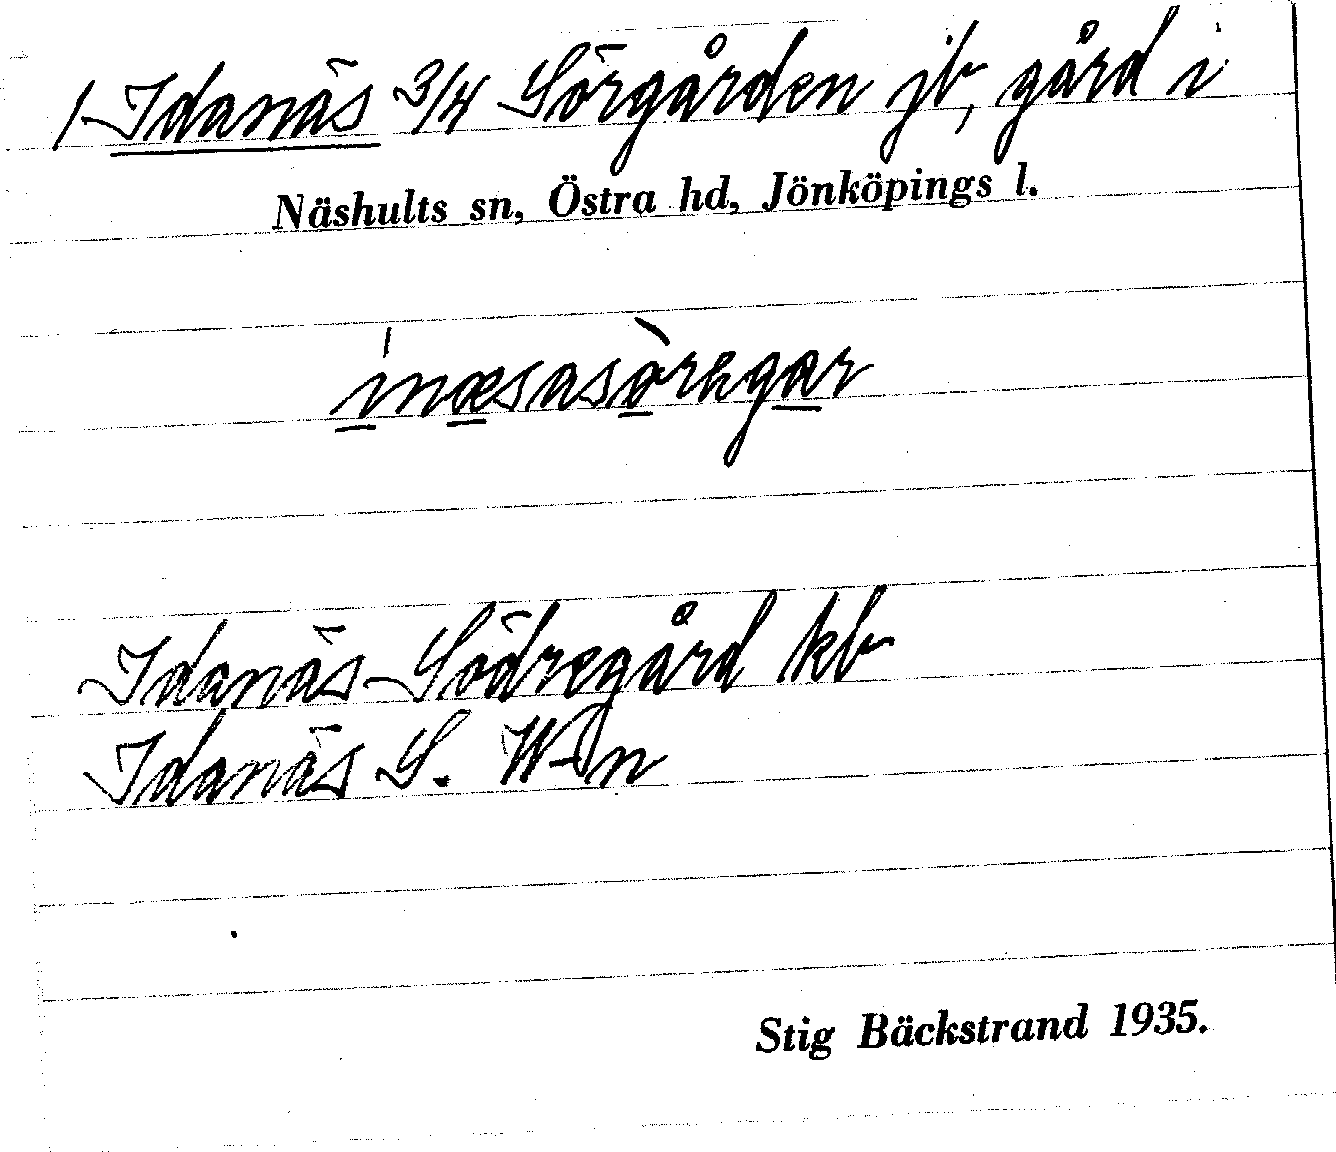 / Idanäs 3/4 Sörgården jb, gård i
Näshults sn, Östra hd, Jönköpings l.
inæsasòrhgar
Idanäs Södregård kb
Idanäs S. W-n
Stig Bäckstrand 1935.